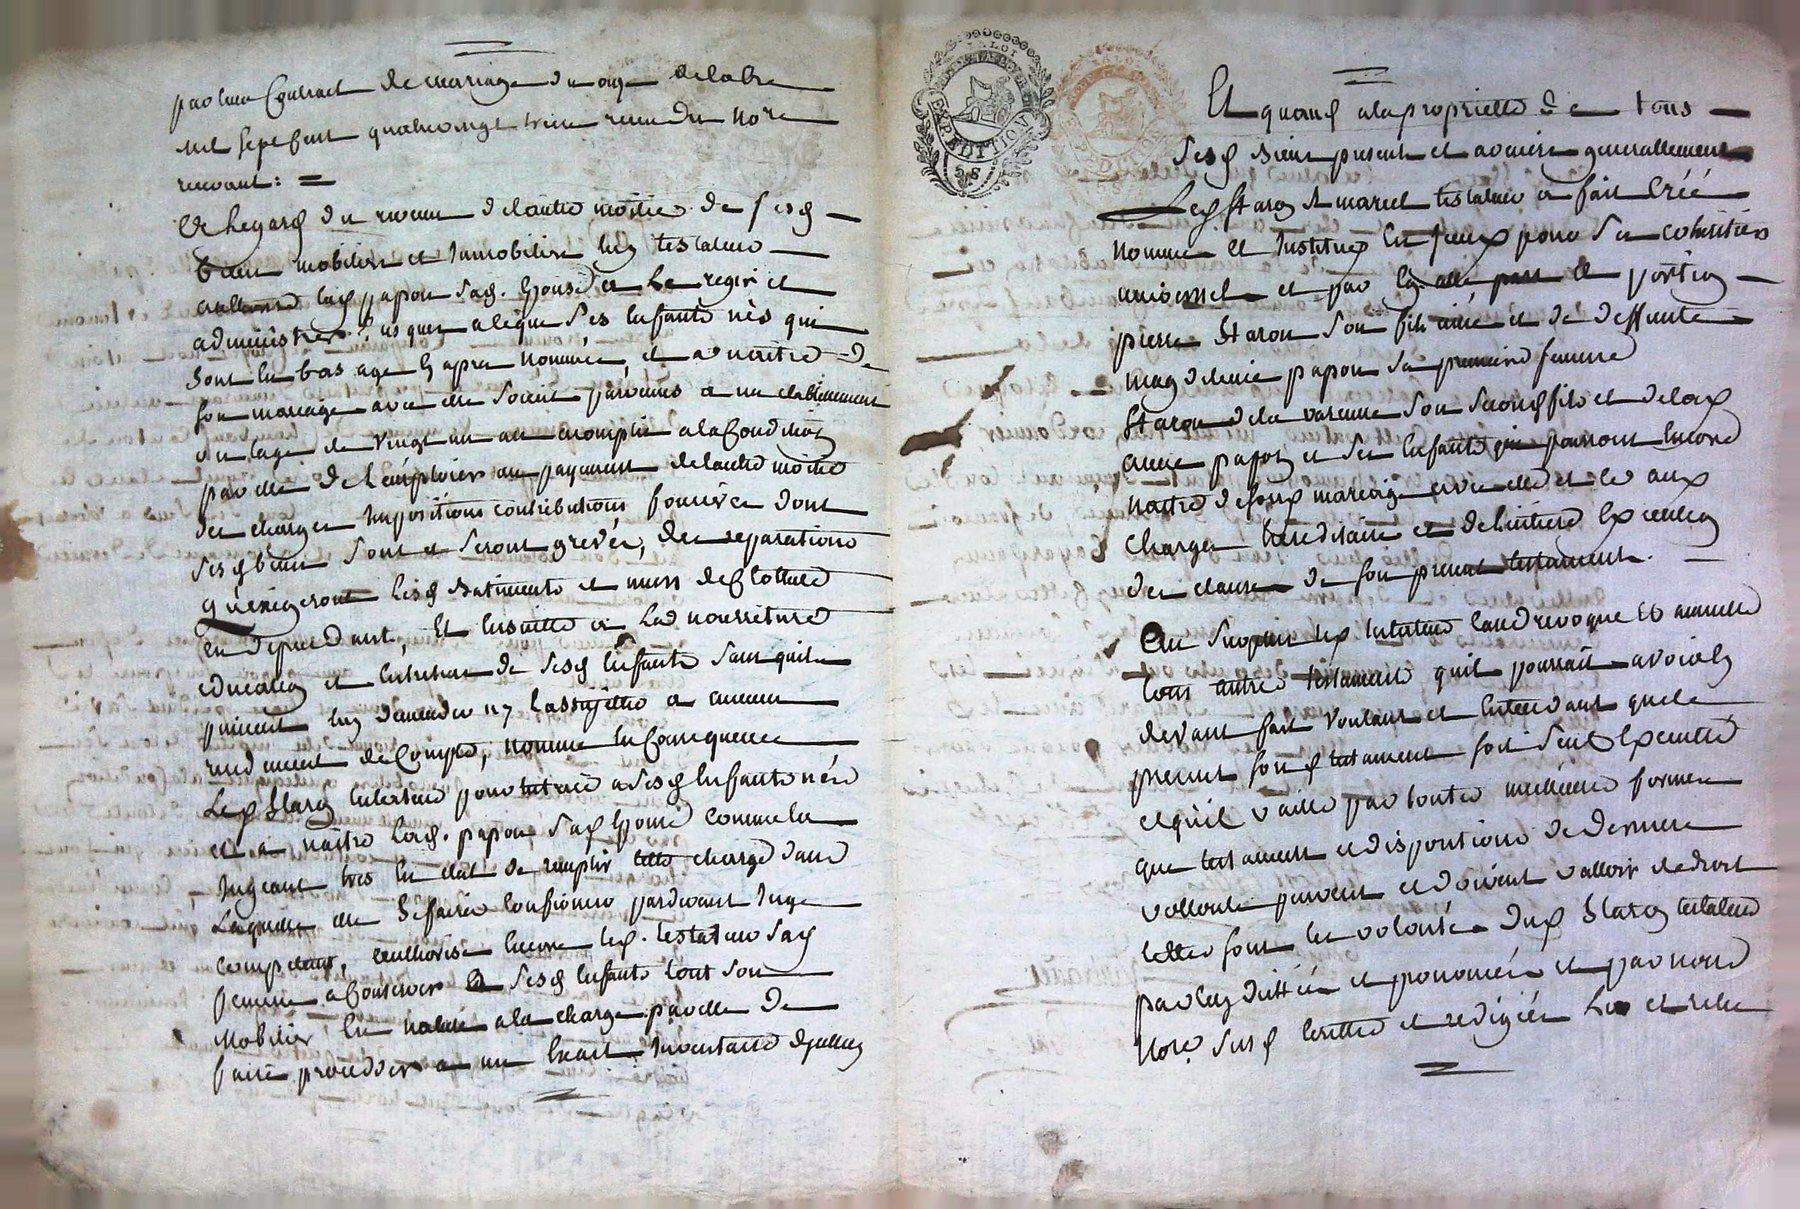 par leur Contract de mariage du onze
mil sept cent quatre vingt treize recu du nore
recevant :
A Legard du revenu de lautre moitié de sesd
biens mobiliers et Immobiliers led testateur
authorise lad papon sad. Epouse a Le regir et
administrer jusques a ceque ses Enfants nés qui
sont En bas age Cy apres nommés et a naitre de
son mariage avec elle soient parvenus a un etablissement
ou lage de vingt un ans accomplis a la Condition
par elle de l'emploier au payement de lautre moitié
des charges Impositions contributions foncires dont
sesd biens sont et seront grevés, des reparations
qu'exigeront Lesd Batiments et murs de Clotture
en dependant, Et Ensuitte a La nourriture
education et Entretien de sesd Enfants sans quils
puissent luy demander ny Lassujettir a aucun
rendement de Compte, nomme En Consequence
Led Staron testateur pour tutrice a sesd Enfants nés
et a naitre Lad. papon sad Epouse comme la
Jugeant tres En etat de remplir cette charge dans
Laquelle elle Se faira Confirmer pardevant Juge
competant, authorise Encore led. testateur sad
femme a Conserver a sesd Enfants tout son
Mobilier En nature a la charge par elle de
faire proceder a un Exact Inventaire d'jcelluy
LA LOI
EXPEDITION
Et quand a la proprietté de tous
sesd Biens present et avenirs generallement
Led Staron St marcel testateur a fait Créé
nommé et Institué En Jceux pour ses cohéritiers
universels et par Egalle part et portion
pierre Staron son fils ainé et de deffunte
magdeleine papon sa premiere femme
Staron de la varenne son second fils et de lad
anne papon et les Enfants qui pourront Encore
naitre de sond mariage avec elle et ce aux
charges hereditaires et de l'entiere Execution
des clauses de son present testament.
Au surplus led testateur casse revoque et annulle
tous autres testaments quil pourrait avoir cy
devant fait Voulant et Entendant que le
present sond testament soit seul Executté
et quil vaille par toutes meilleures formes
que testament et dispositions de derniere
vollonté peuvent et doivent valloir de droit
telles sont les volontés dud Staron testateur
par luy dittées et prononcées et par nous
Nore susd Ecrittes et redigées Lu et relu